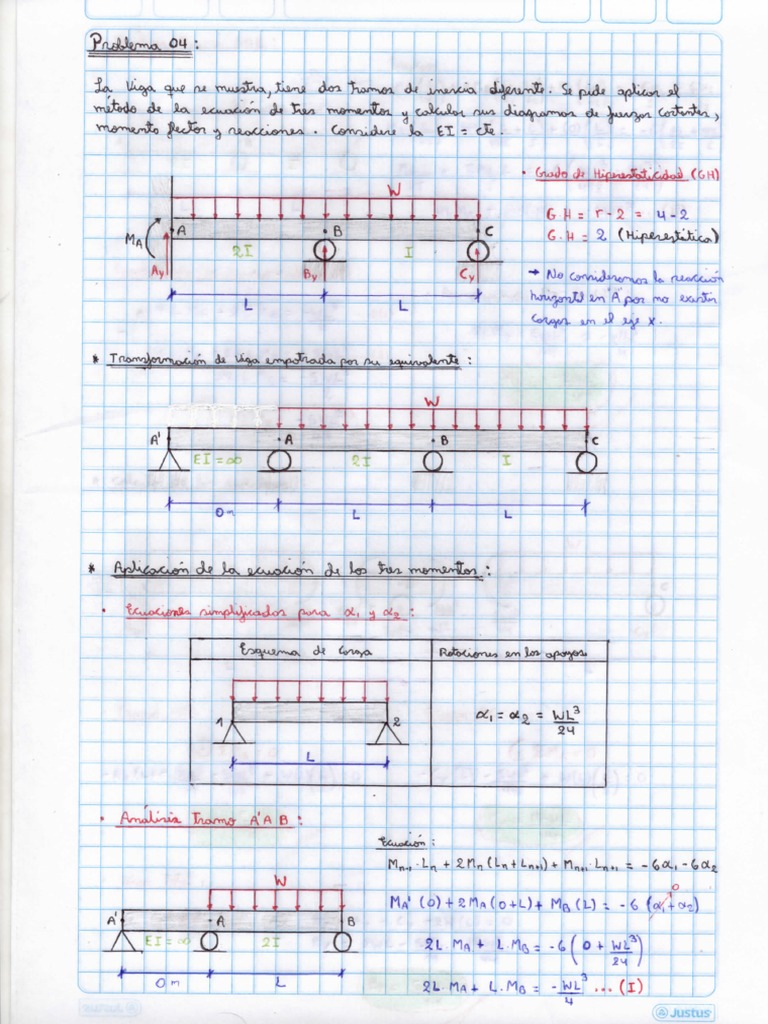 Problema 04 :
La Viga que se muestra, tiene dos tramos de inercia diferente. Se pide aplicar el
método de la ecuación de tres momentos y calcular sus diagramas de fuerzas cortantes,
momento flector y reacciones. Considere la EI = cte.
• Grado de Hiperestaticidad (GH)
G.H = r-2 = 4-2
G.H = 2 (Hiperestática)
→ No consideramos la reacción
horizontal en "A" por no existir
cargas en el eje x.
W
MA A B C
2I I
Ay By Cy
L L
* Transformación de viga empotrada por su equivalente :
W
A' A B C
EI = ∞ 2I I
0m L L
* Aplicación de la ecuación de los tres momentos :
• Ecuaciones simplificadas para α1 y α2 :
Esquema de Carga Rotaciones en los apoyos
1 2
L
α1 = α2 = WL³/24
• Análisis Tramo A'A B :
Ecuación :
Mn-1 · Ln + 2Mn (Ln + Ln+1) + Mn+1 · Ln+1 = -6α1 - 6α2
MA' (0) + 2MA (0+L) + MB (L) = -6 (α1 + α2)
0
2L·MA + L·MB = -6 (0 + WL³/24)
2L·MA + L·MB = -WL³/4 ... (I)
W
A' A B
EI = ∞ 2I
0m L
Justus